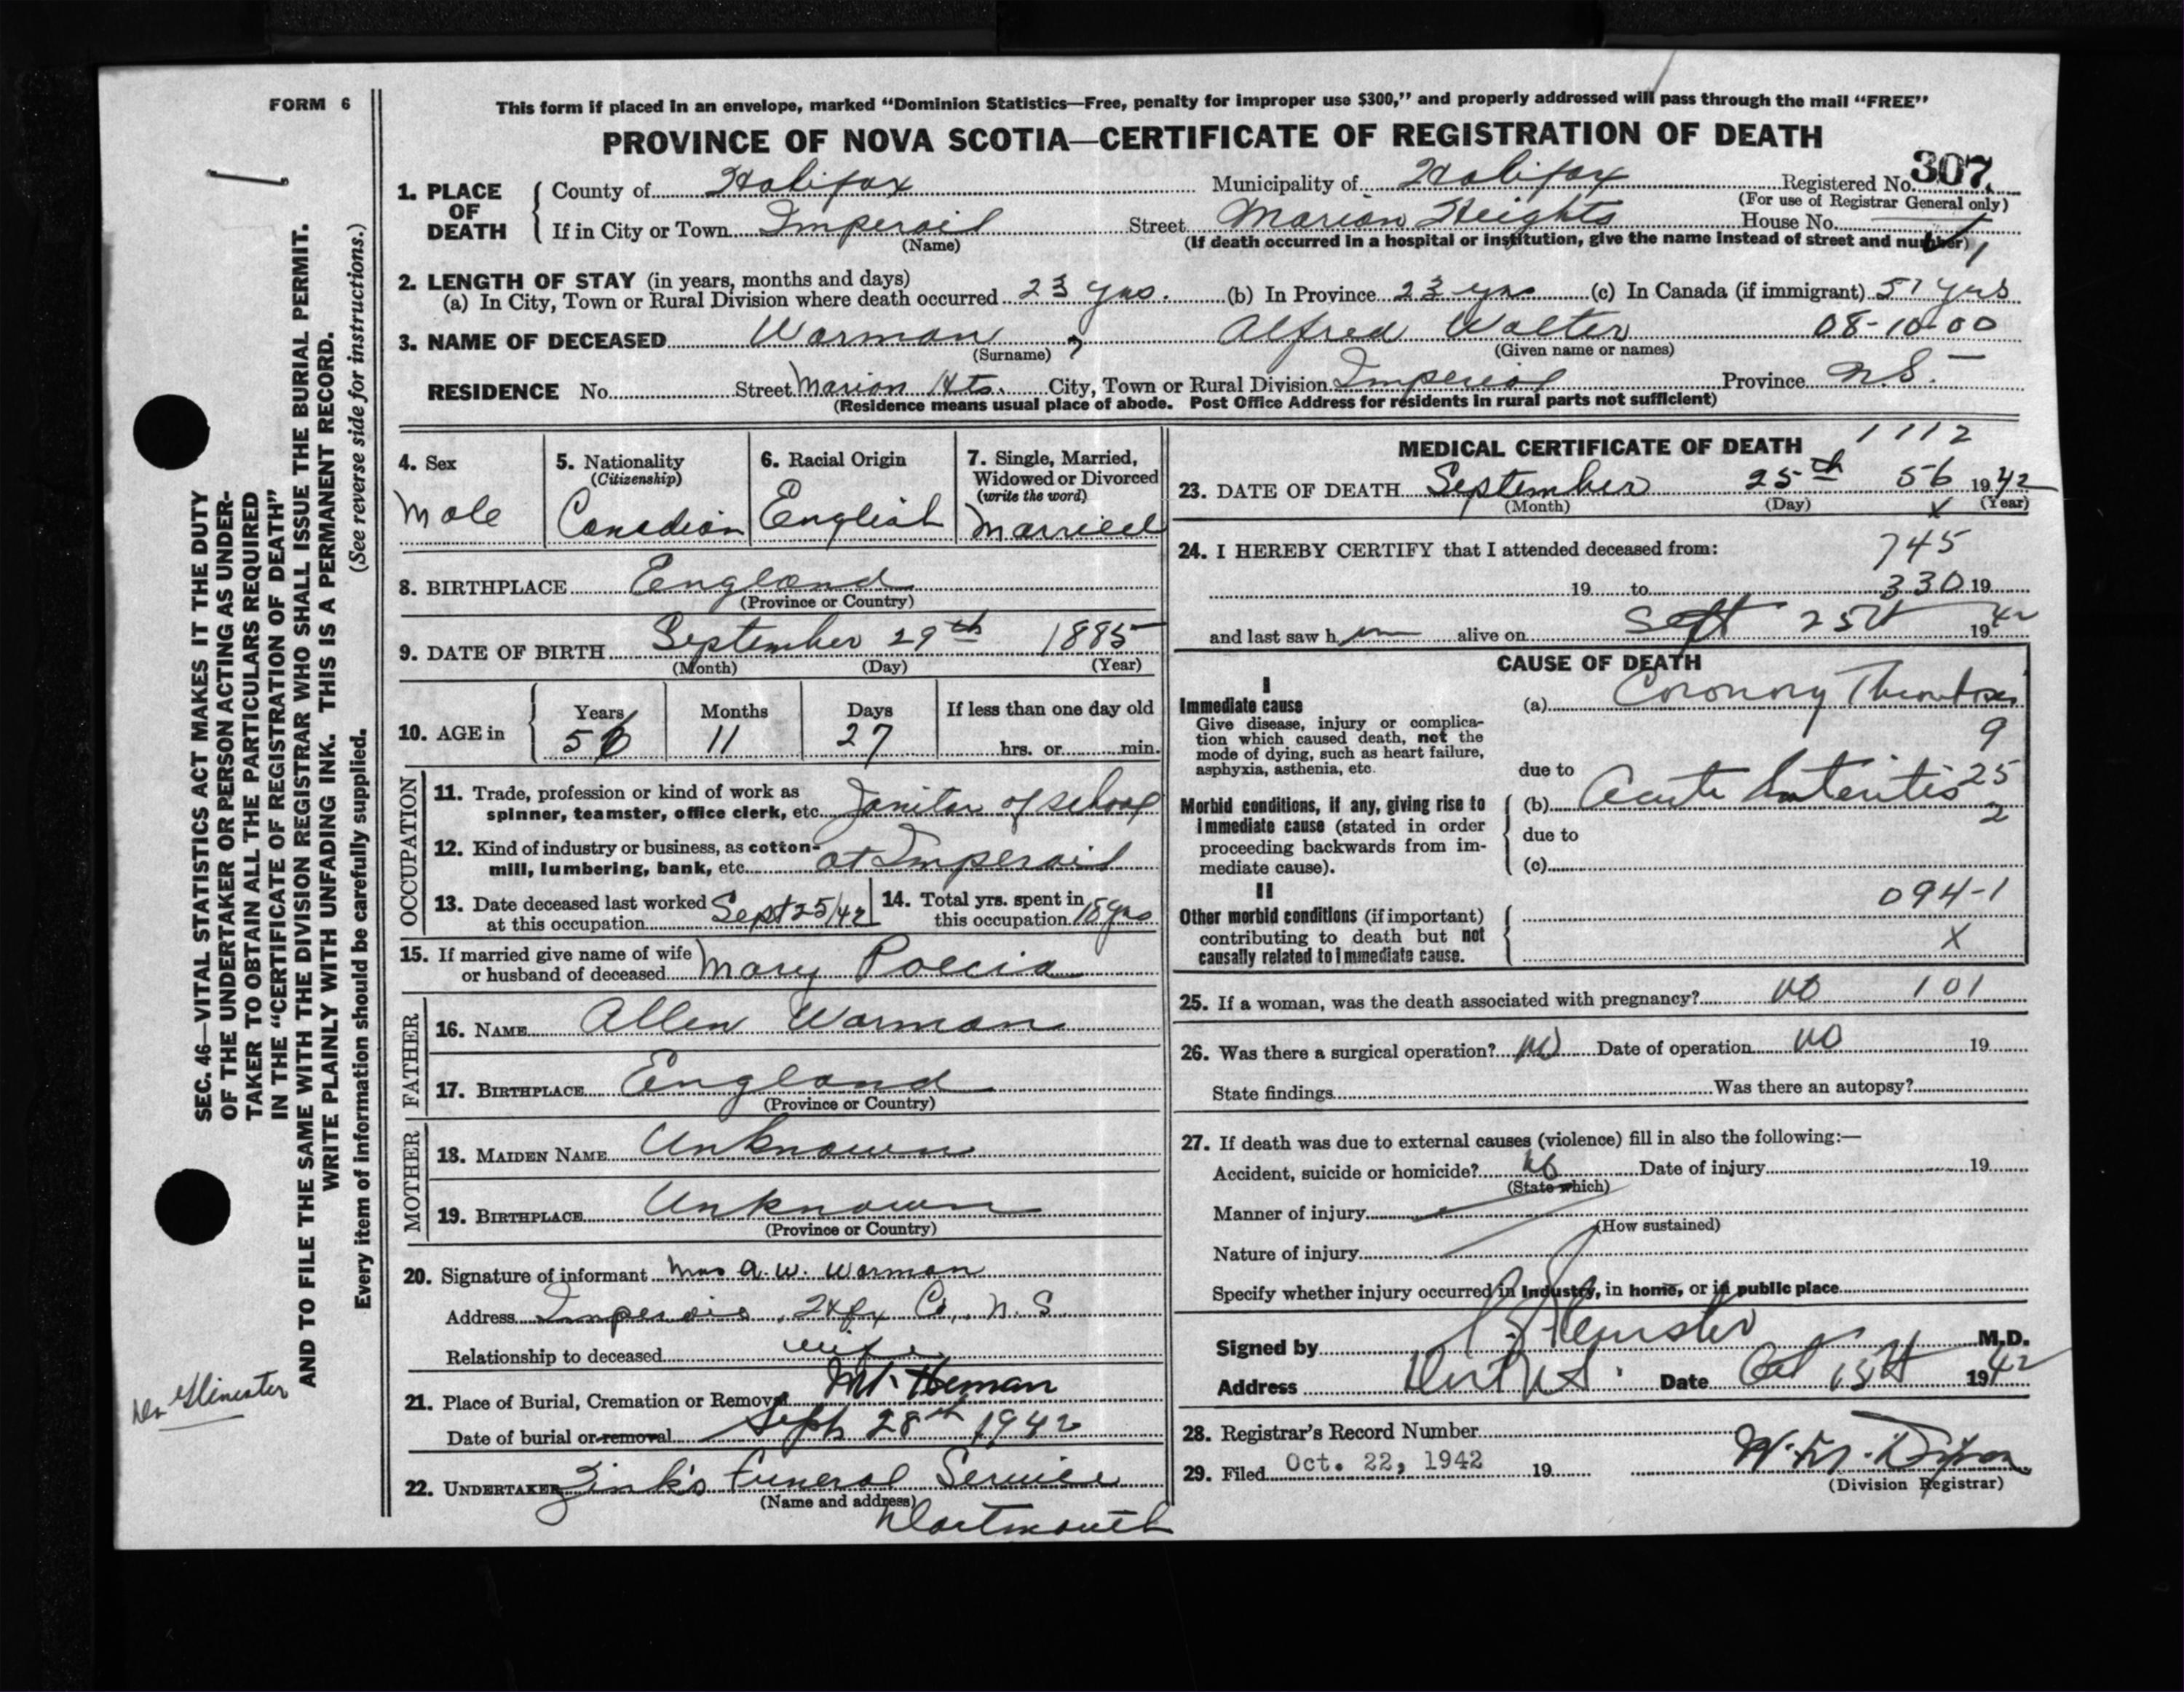 FORM 6
This form if placed in an envelope, marked “Dominion Statistics—Free, penalty for improper use $300,” and properly addressed will pass through the mail “FREE”
PROVINCE OF NOVA SCOTIA—CERTIFICATE OF REGISTRATION OF DEATH
307.
1. PLACE OF DEATH County of Halifax Municipality of Halifax Registered No.
(For use of Registrar General only)
If in City or Town Imperoil Street Marion Heights House No.
(Name)
(If death occurred in a hospital or institution, give the name instead of street and number)
2. LENGTH OF STAY (in years, months and days)
(a) In City, Town or Rural Division where death occurred 23 yrs. (b) In Province 23 yrs (c) In Canada (if immigrant) 51 yrs
3. NAME OF DECEASED Warman Alfred Walter 08-10-00
(Surname) (Given name or names)
RESIDENCE No. Street Marion Hts. City, Town or Rural Division Imperoil Province N.S.
(Residence means usual place of abode. Post Office Address for residents in rural parts not sufficient)
4. Sex
Male
5. Nationality
(Citizenship)
Canadian
6. Racial Origin
English
7. Single, Married,
Widowed or Divorced
(write the word)
Married
8. BIRTHPLACE England
(Province or Country)
9. DATE OF BIRTH September 29th 1885
(Month) (Day) (Year)
10. AGE in
Years Months Days If less than one day old
56 11 27 hrs. or min.
OCCUPATION
11. Trade, profession or kind of work as
spinner, teamster, office clerk, etc. Janitor of school
12. Kind of industry or business, as cotton-
mill, lumbering, bank, etc. at Imperoil
13. Date deceased last worked
at this occupation Sept 25/42
14. Total yrs. spent in
this occupation 18 yrs
15. If married give name of wife
or husband of deceased Mary
FATHER
16. NAME Allen Warman
17. BIRTHPLACE England
(Province or Country)
MOTHER
18. MAIDEN NAME Unknown
19. BIRTHPLACE Unknown
(Province or Country)
20. Signature of informant Mrs A. W. Warman
Address Imperoil, Hfx Co, N.S.
Relationship to deceased wife
21. Place of Burial, Cremation or Removal Mt. Herman
Date of burial or removal Sept 28th 1942
22. UNDERTAKER Zink's Funeral Service
(Name and address)
Dartmouth
MEDICAL CERTIFICATE OF DEATH 1112
23. DATE OF DEATH September 25th 56 1942
(Month) (Day) x (Year)
24. I HEREBY CERTIFY that I attended deceased from:
745
19 to 330 19
and last saw him alive on Sept 25th 1942
CAUSE OF DEATH
I
Immediate cause
Give disease, injury or complica-
tion which caused death, not the
mode of dying, such as heart failure,
asphyxia, asthenia, etc.
(a) Coronary Thrombosis
9
due to
Morbid conditions, if any, giving rise to
immediate cause (stated in order
proceeding backwards from im-
mediate cause).
(b) Acute 25
2
due to
(c)
II
Other morbid conditions (if important)
contributing to death but not
causally related to immediate cause.
094-1
X
25. If a woman, was the death associated with pregnancy? no 101
26. Was there a surgical operation? no Date of operation no 19
State findings Was there an autopsy?
27. If death was due to external causes (violence) fill in also the following:—
Accident, suicide or homicide? no Date of injury 19
(State which)
Manner of injury
(How sustained)
Nature of injury
Specify whether injury occurred in industry, in home, or in public place
Signed by M.D.
Address Date Oct 15th 1942
28. Registrar's Record Number
29. Filed Oct. 22, 1942 19
(Division Registrar)
SEC. 46—VITAL STATISTICS ACT MAKES IT THE DUTY
OF THE UNDERTAKER OR PERSON ACTING AS UNDER-
TAKER TO OBTAIN ALL THE PARTICULARS REQUIRED
IN THE “CERTIFICATE OF REGISTRATION OF DEATH”
AND TO FILE THE SAME WITH THE DIVISION REGISTRAR WHO SHALL ISSUE THE BURIAL PERMIT.
WRITE PLAINLY WITH UNFADING INK. THIS IS A PERMANENT RECORD.
Every item of information should be carefully supplied. (See reverse side for instructions.)